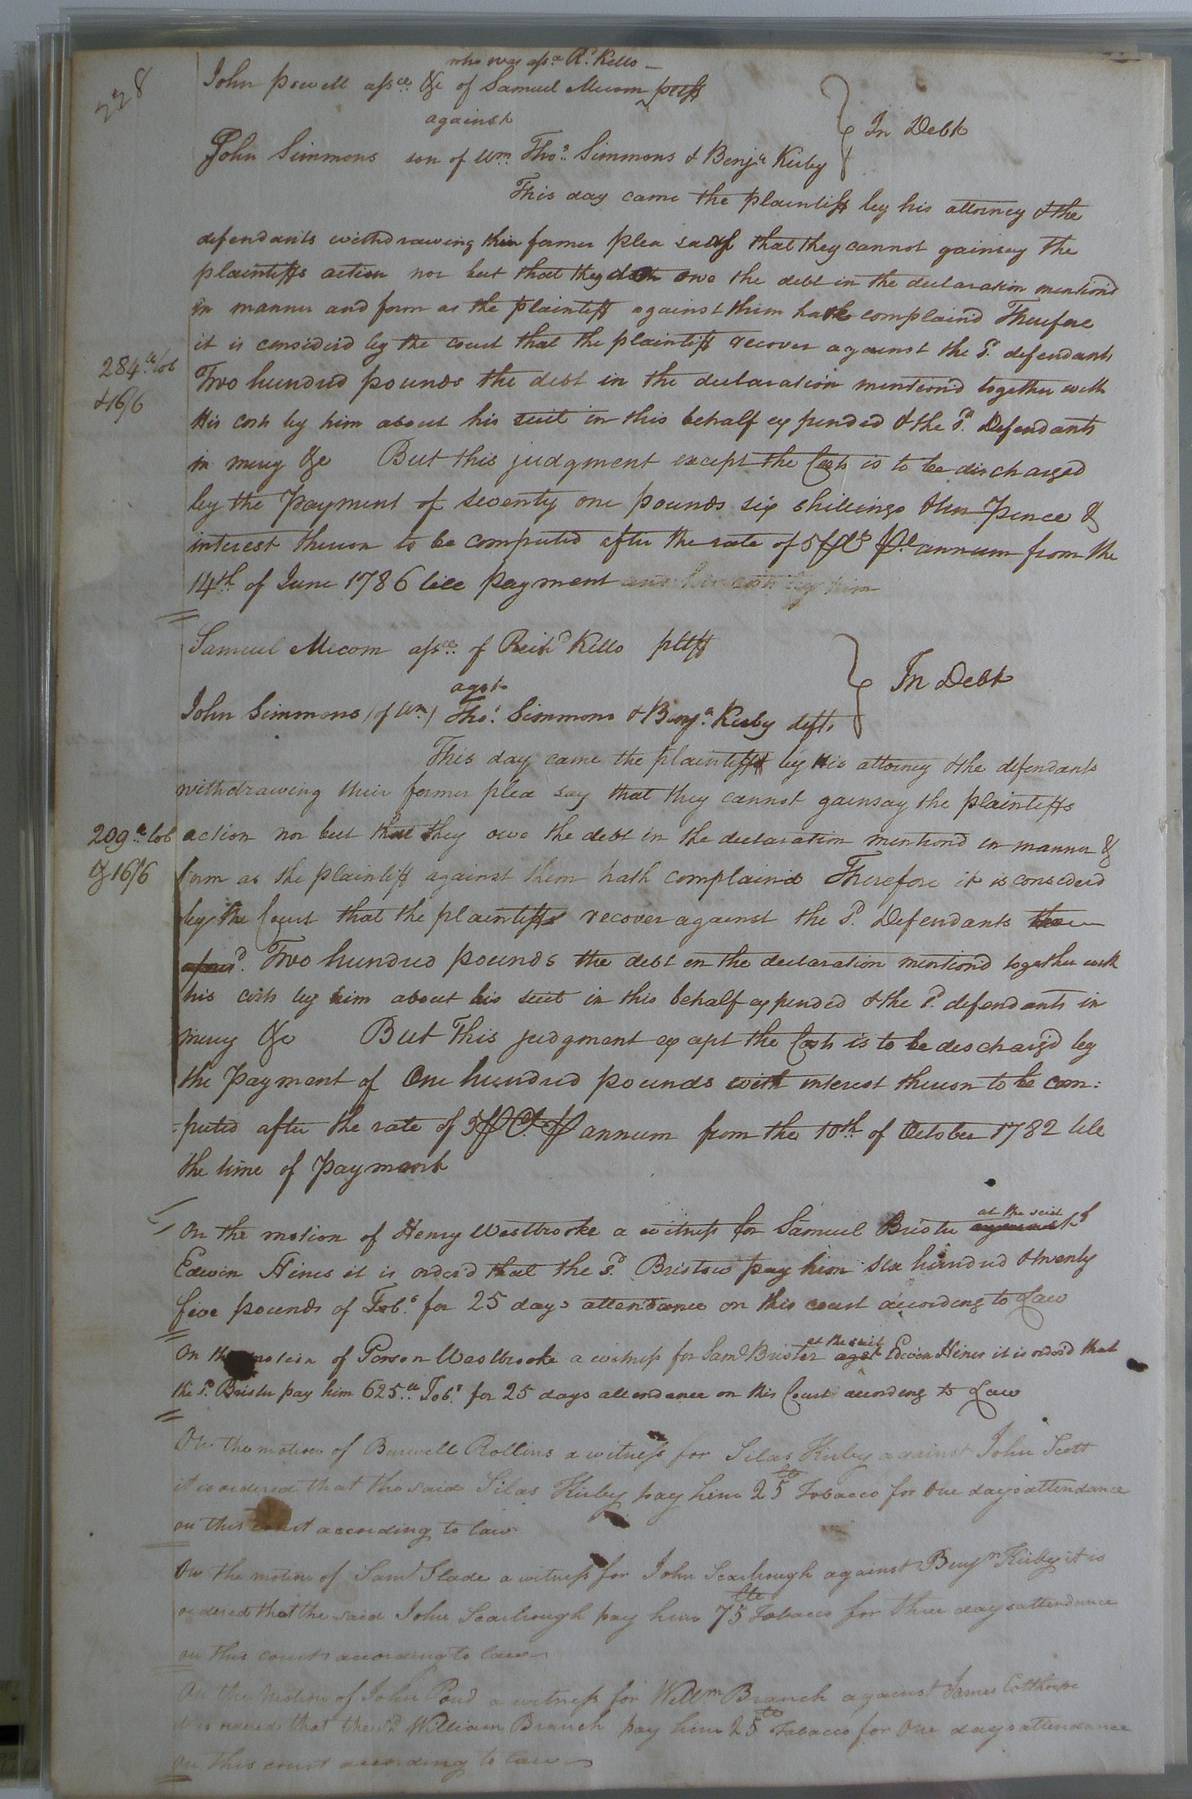 228
who was asse. Rd. Kello
John Powell asse. &c of Samuel Micom pltff
against
In Debt
John Simmons son of Wm. Thos. Simmons & Benja. Kirby
This day came the plaintiff by his attorney & the
defendants withdrawing their former plea saith that they cannot gainsay the
plaintiffs action nor but that they doth owe the debt in the declaration mention'd
in manner and form as the plaintiff against them hath complain'd Therefore
it is consider'd by the court that the plaintiff recover against the sd. defendants
284 tob
& 16/6
Two hundred pounds the debt in the declaration mention'd together with
His costs by him about his suit in this behalf expended & the sd. Defendants
in mercy &c But this judgment except the Costs is to be discharged
by the Payment of seventy one pounds six shillings & ten Pence &
interest thereon to be computed after the rate of 5 pCt. pr annum from the
14th of June 1786 till payment and his costs by him
Samuel Micom assee. of Richd Kello pltff
agst.
In Debt
John Simmons (of Wm) Thos. Simmons & Benja. Kirby defts
This day came the plaintiff by His attorney & the defendants
withdrawing their former plea say that they cannot gainsay the plaintiffs
209 tob
& 16/6
action nor but that they owe the debt in the declaration mention'd in manner &
form as the plaintiff against them hath complain'd Therefore it is considered
by the Court that the plaintiffs recover against the sd. Defendants the
aforesd. Two hundred pounds the debt in the declaration mention'd together with
his costs by him about his suit in this behalf expended & the sd. defendants in
mercy &c But This judgment except the Costs is to be discharg'd by
the Payment of One hundred pounds with interest thereon to be com:
-puted after the rate of 5 p Ct. p annum from the 10th. of October 1782 till
the time of Payment
at the suit
On the motion of Henry Westbrooke a witness for Samuel Bristu against of
Edwin Hines it is order'd that the sd. Bristow pay him six hundred & twenty
five pounds of Tobo. for 25 days attendance on this court according to Law
at the suit
On the motion of Parson Westbrooke a witness for Saml Brister agst Edwin Hines it is order'd that
the sd. Bristu pay him 625 Tobo. for 25 days attendance on this Court according to Law
On the motion of Burwell Rollins a witness for Silas Kirby against John Scott
it is ordered that the said Silas Kirby pay him 25 lb Tobacco for One days attendance
on this court according to law
On the motion of Saml Slade a witness for John Scarbrough against Benjn Kirby it is
ordered that the said John Scarbrough pay him 75 lbs Tobacco for three days attendance
on this court according to law
On the Motion of John Pond a witness for Willm Branch against James
it is ordered that the sd William Branch pay him 25 lb Tobacco for One days attendance
on this court according to law